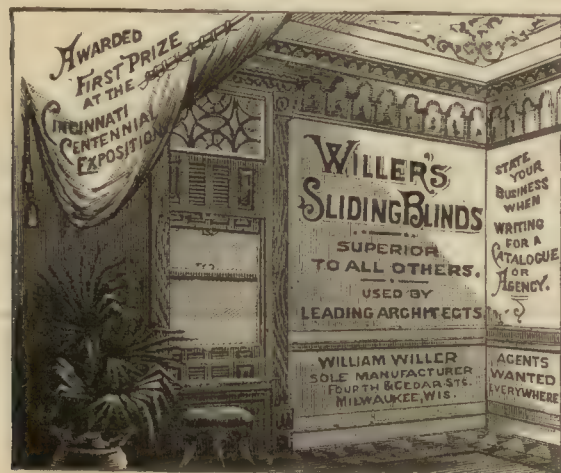 AWARDED
FIRST PRIZE
AT THE
CINCINNATI
CENTENNIAL
EXPOSITION
WILLER'S
SLIDING BLINDS
SUPERIOR
TO ALL OTHERS.
USED BY
LEADING ARCHITECTS
WILLIAM WILLER
SOLE MANUFACTURER
FOURTH & CEDAR STS.
MILWAUKEE, WIS.
STATE
YOUR
BUSINESS
WHEN
WRITING
FOR A
CATALOGUE
OR
AGENCY.
AGENTS
WANTED
EVERYWHERE